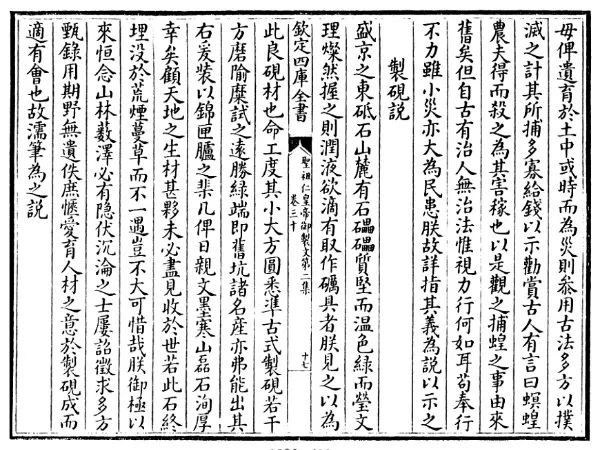 毋俾遺育於土中或時而為災則叅用古法多方以撲
滅之計其所捕多寡給錢以示勸賞古人有言曰螟蝗
農夫得而殺之為其害稼也以是觀之捕蝗之事由來
舊矣但自古有治人無治法惟視力行何如耳苟奉行
不力雖小災亦大為民患朕故詳指其義為說以示之
製硯說
盛京之東砥石山麓有石礧礧質堅而温色綠而瑩文
理燦然握之則潤液欲滴有取作礪具者朕見之以為
欽定四庫全書
聖祖仁皇帝御製文第二集
卷三十
十七
此良硯材也命工度其小大方圓悉準古式製硯若干
方磨隃糜試之遠勝綠端即舊坑諸名產亦弗能出其
右爰裝以錦匣臚之棐几俾日親文墨寒山磊石洵厚
幸矣顧天地之生材甚夥未必盡見收於世若此石終
埋没於荒煙蔓草而不一遇豈不大可惜哉朕御極以
來恒念山林藪澤必有隐伏沉淪之士屢詔徵求多方
甄錄用期野無遺佚庶愜愛育人材之意於製硯成而
適有會也故濡筆為之說